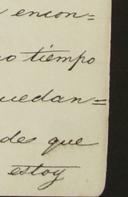 encon=
o tiempo
uedan=
de que
estoy